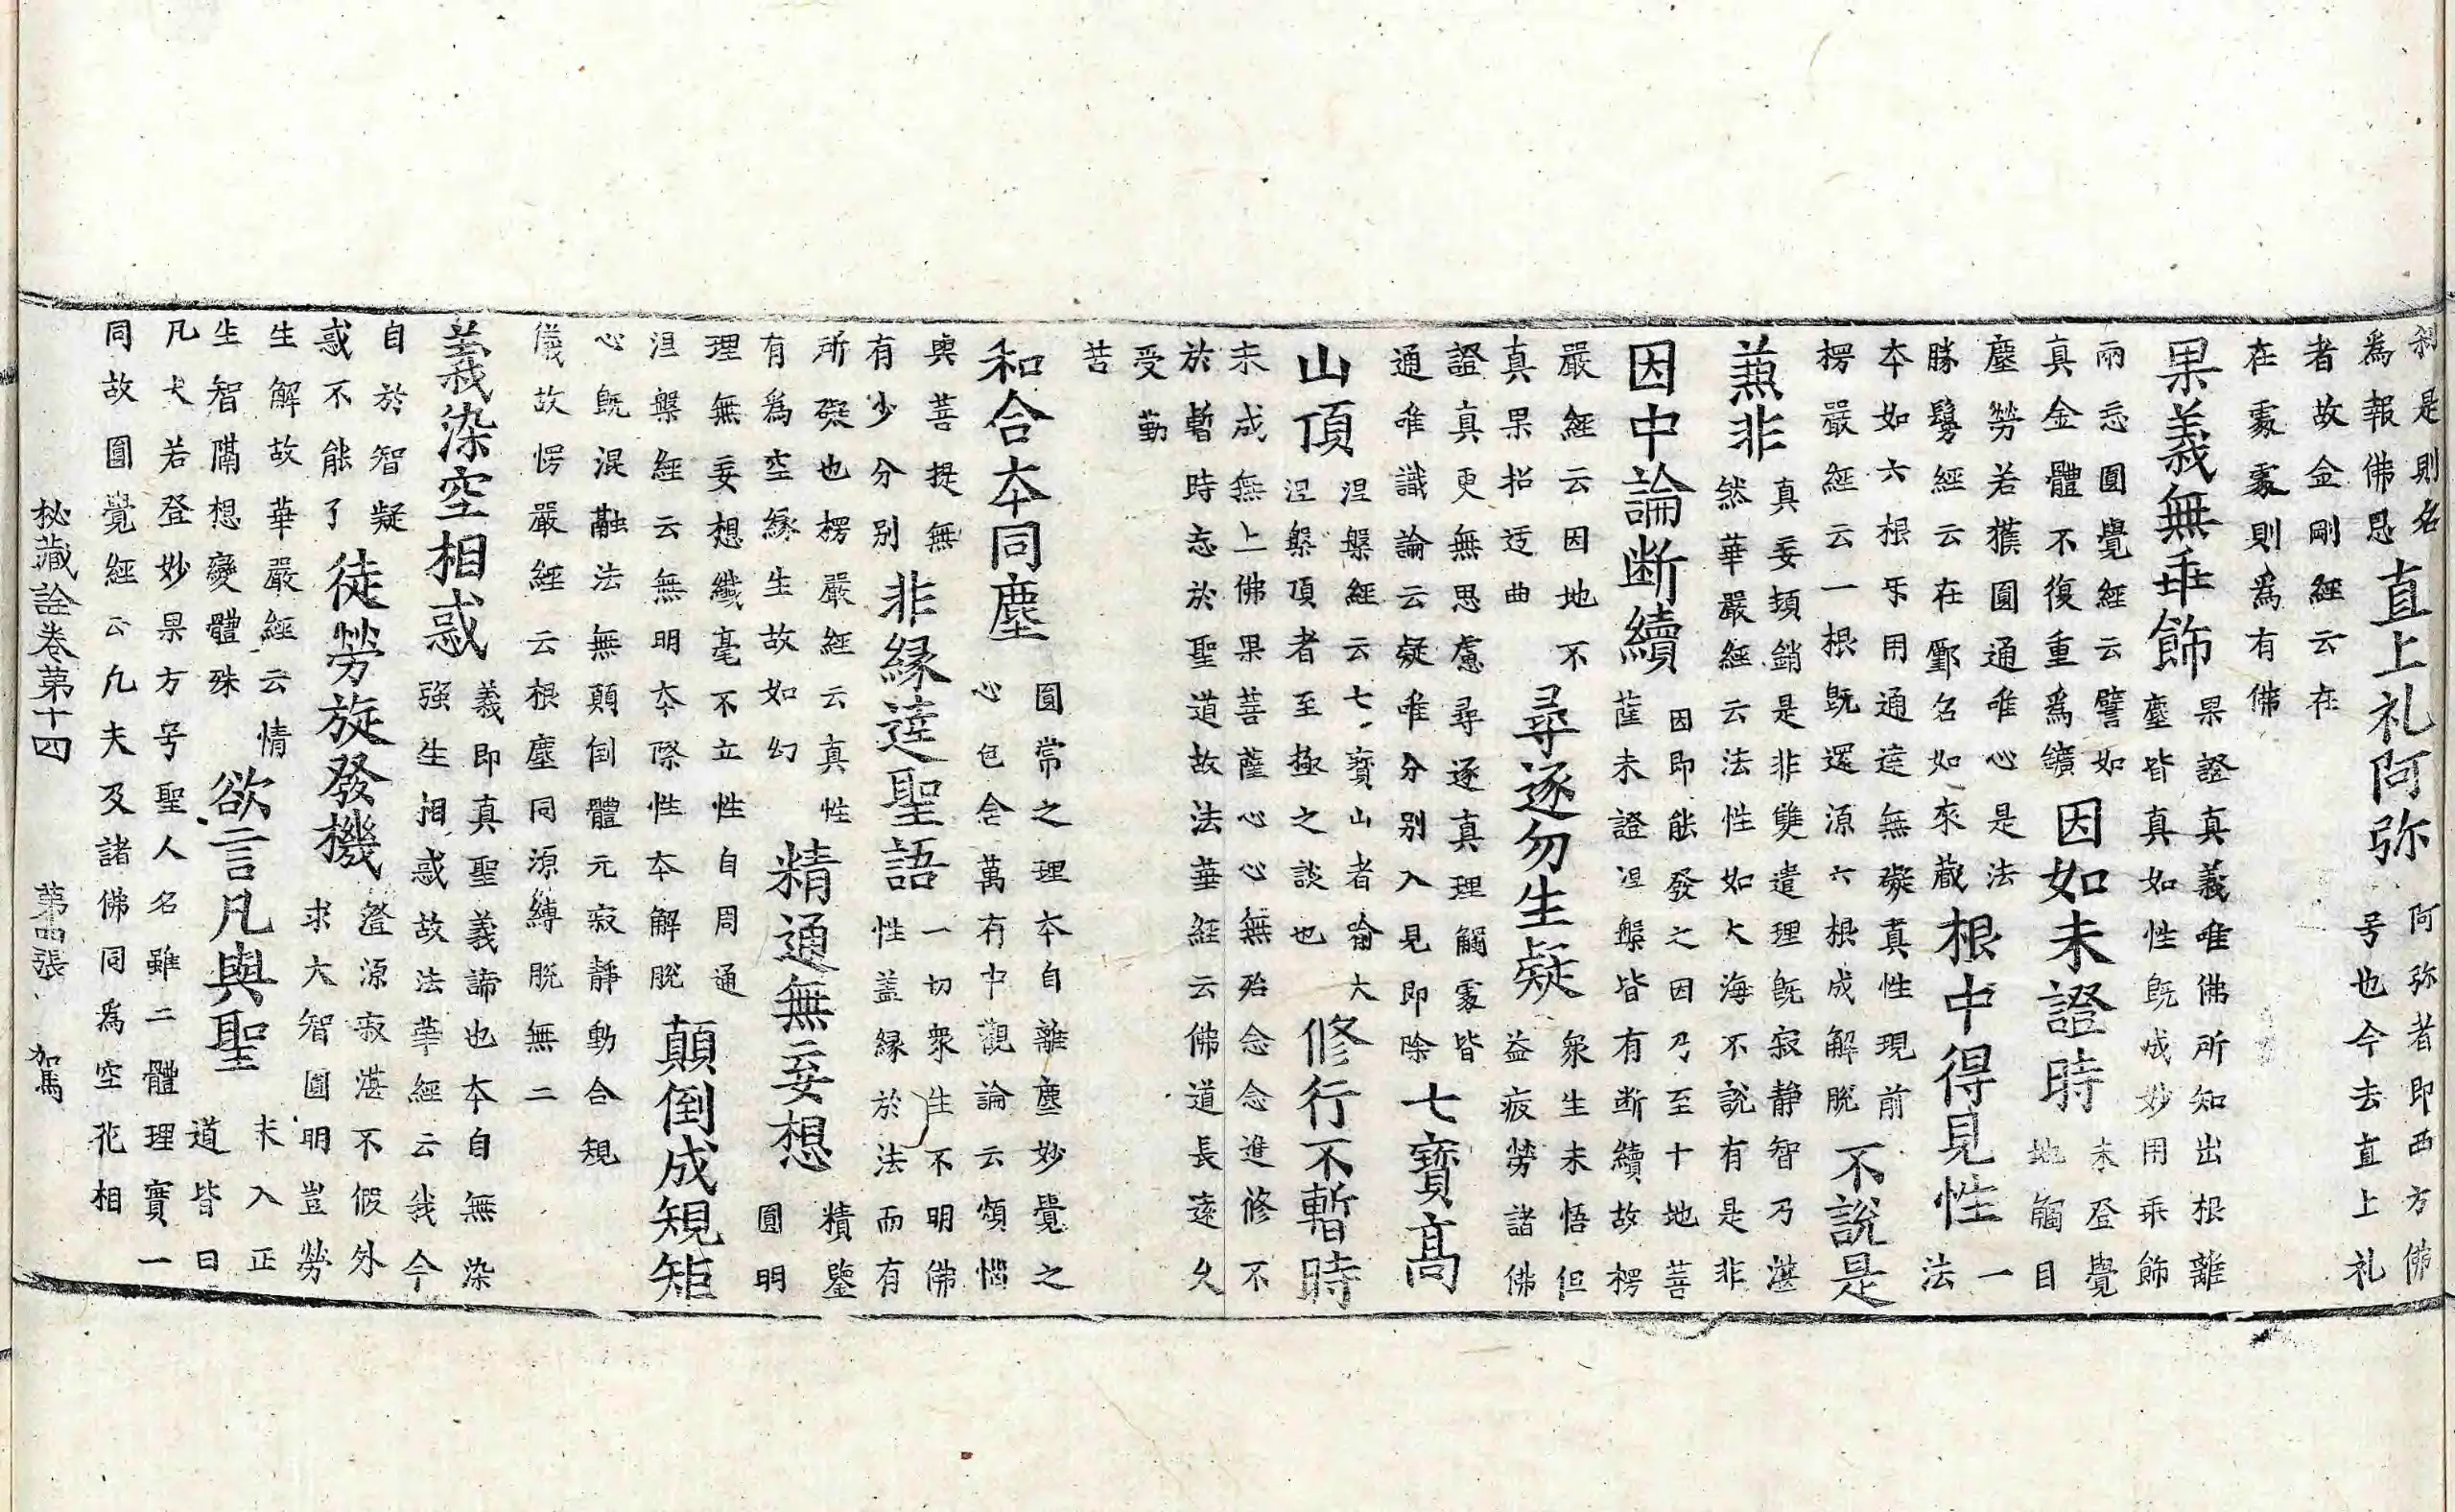 刹是則名
為報佛恩
直上礼阿弥
阿弥者即西方佛
号也今去直上礼
者故金剛經云在
在處處則為有佛
果義無乖飾
果證真義唯佛所知出根離
塵皆真如性既成妙用乖飾
兩忘圓覺經云譬如
真金體不復重為鑛
因如未證時
未登覺
地觸目
塵勞若獲圓通唯心是法
勝鬘經云在鄽名如來藏
根中得見性
一
法
本如六根㸦用通達無礙真性現前
楞嚴經云一根既還源六根成解脫
不說是
兼非
真妄頓銷是非雙遣理既寂静智乃湛
然華嚴經云法性如大海不說有是非
因中論断續
因即能發之因乃至十地菩
薩未證涅槃皆有断續故楞
嚴經云因地不
真果招迂曲
尋逐勿生疑
衆生未悟但
益疲勞諸佛
證真更無思慮尋逐真理觸處皆
通唯識論云疑唯分別入見即除
七寳髙
山頂
涅槃經云七寳山者喻大
涅槃頂者至極之談也
修行不暫時
未成無上佛果菩薩心心無殆念念進修不
於暫時忘於聖道故法華經云佛道長遠久
受勤
苦
和合本同塵
圓常之理本自離塵妙覺之
心包含萬有中觀論云煩惱
與菩提無
有少分別
非緣達聖語
一切衆生不明佛
性盖緣於法而有
所礙也楞嚴經云真性
有為空緣生故如幻
精通無妄想
精鑒
圓明
理無妄想纖毫不立性自周通
涅槃經云無明本際性本解脫
顛倒成規矩
心既混融法無顛倒體元寂静動合規
儀故愣嚴經云根塵同源縛脫無二
義染空相惑
義即真聖義諦也本自無染
强生相惑故法華經云我今
自於智疑
惑不能了
徒勞旋發機
澄源寂湛不假外
求大智圓明豈勞
生解故華嚴經云情
生智隔想變體殊
欲言凡與聖
未入正
道皆曰
凡夫若登妙果方号聖人名雖二體理實一
同故圓覺經云凢夫及諸佛同為空花相
秘藏詮卷第十四 第四張 駕